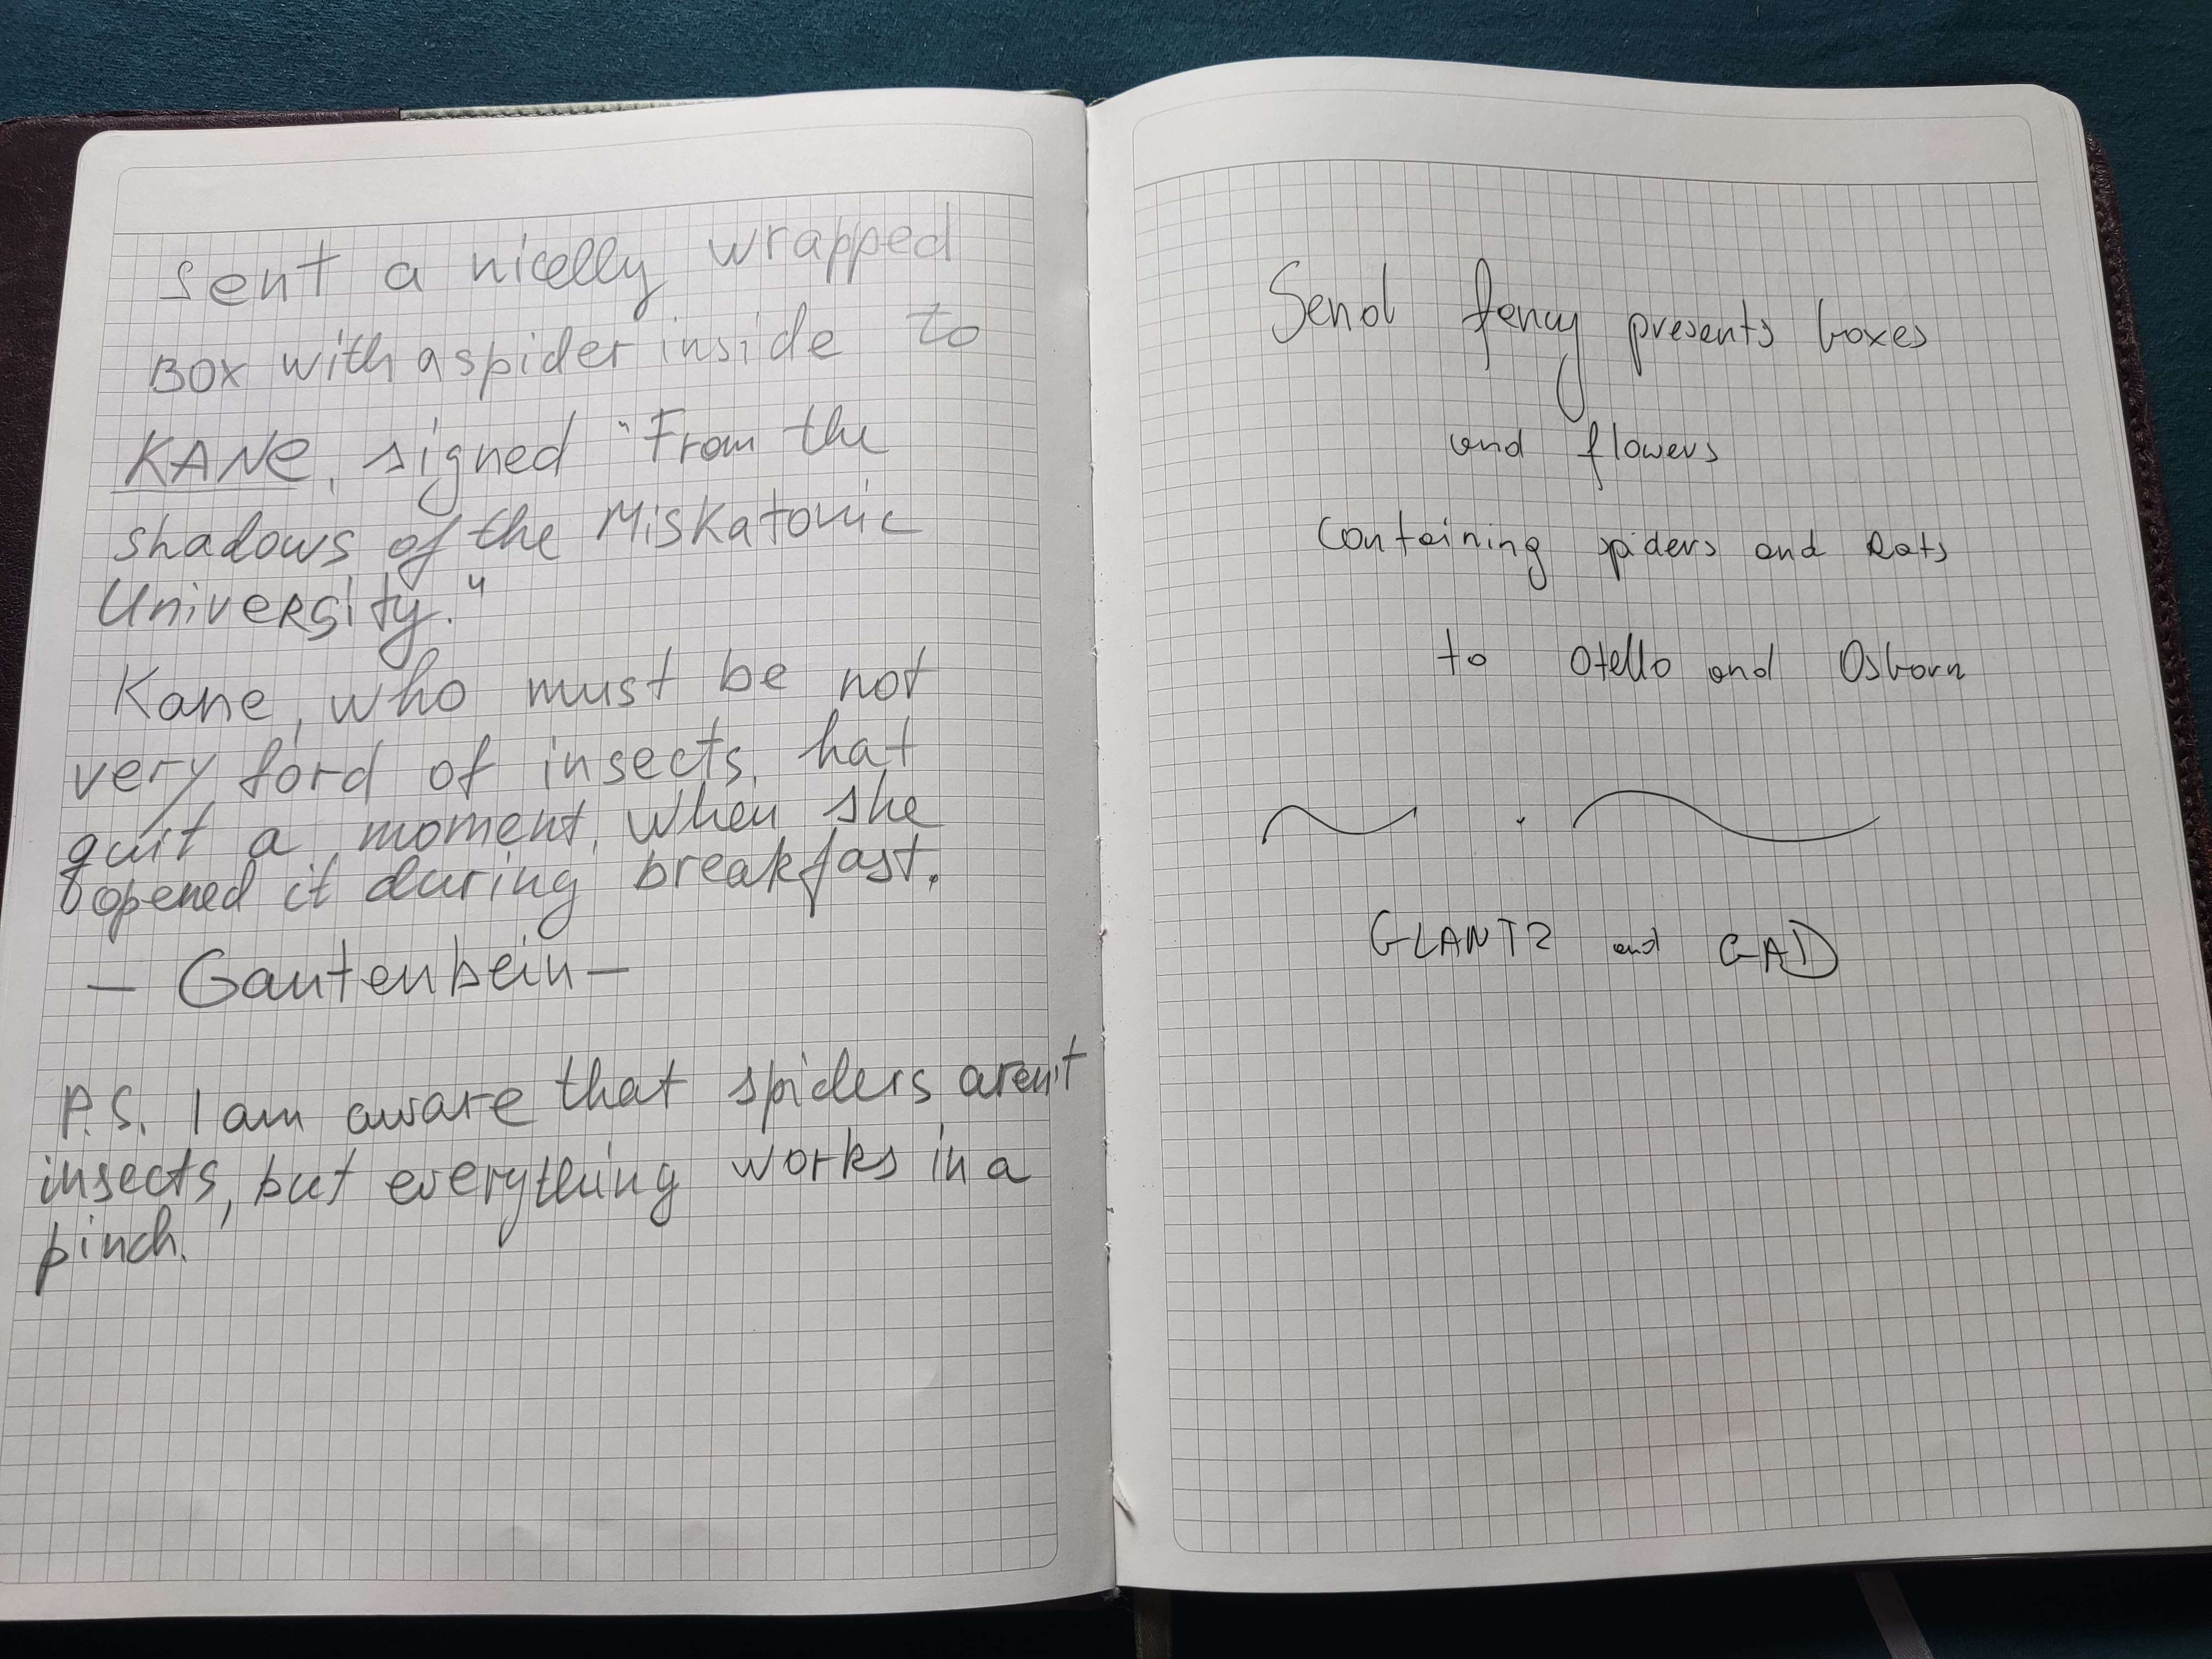 Sent a nicelly wrapped
BOX with a spider inside to
KANE, signed "From the
shadows of the Miskatonic
University."
Kane, who must be not
very fond of insects, hat
quit a moment, when she
opened it during breakfast.
— Gantenbein —
P.S. I am aware that spiders aren't
insects, but everything works in a
pinch.
Send fency presents boxes
and flowers
Containing spiders and Rats
to Otello and Osborn
GLANTZ and GAD